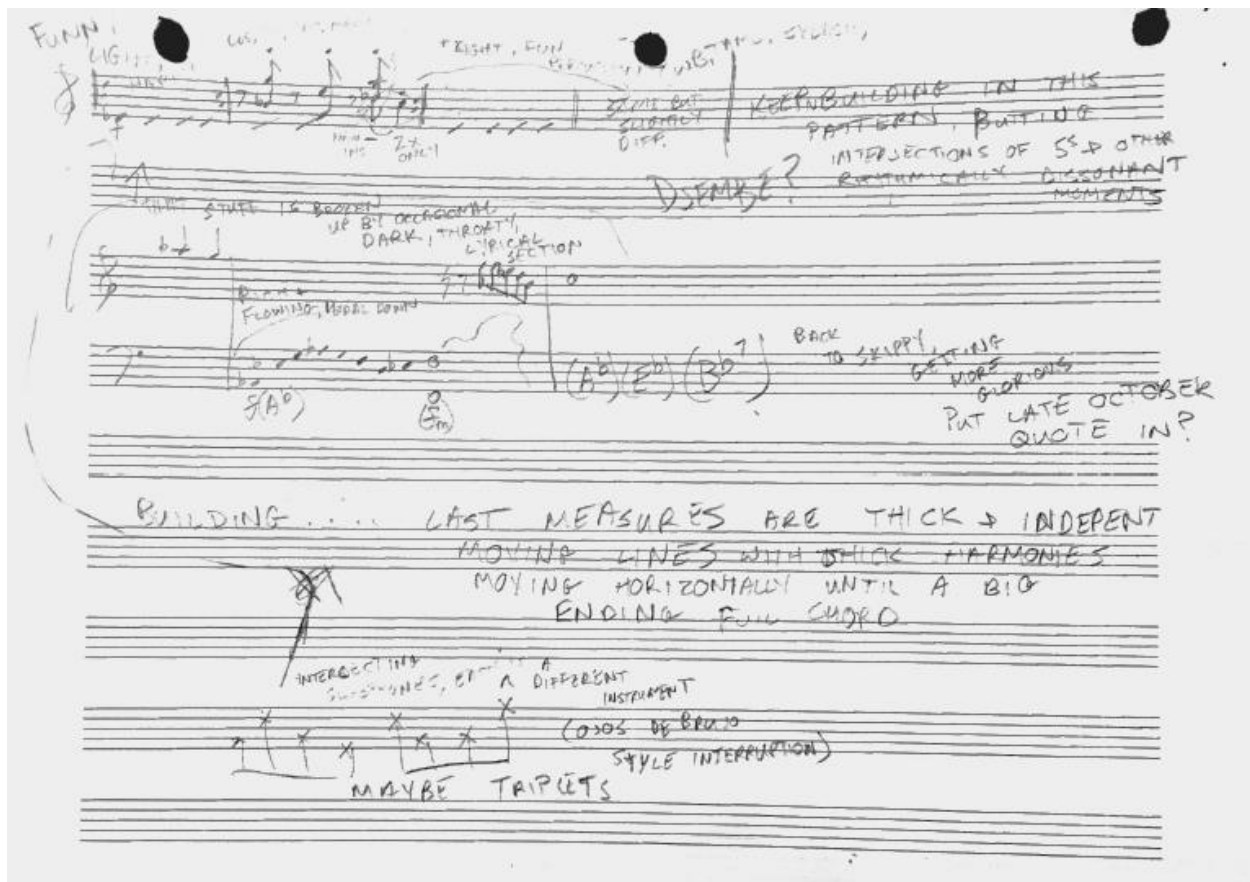 FUNN
LIGHT
+ RIGHT, FUN
KEEP BUILDING IN THIS
PATTERN, BUTTING
INTERSECTIONS OF 5s & OTHER
RHYTHMICALLY DISSONANT
MOMENTS
SAME BUT
SLIGHTLY
DIFF.
2x
ONLY
DJEMBE?
STUFF IS BROKEN
UP BY OCCASIONAL
DARK, THROATY,
LYRICAL
SECTION
FLOWING, PEDAL DOWN
f(Ab)
(Fm)
(Ab) (Eb) (Bb7)
BACK
TO SKIPPY,
GETTING
MORE
GLORIOUS
PUT LATE OCTOBER
QUOTE IN?
BUILDING..... LAST MEASURES ARE THICK & INDEPENT
MOVING LINES WITH THICK HARMONIES
MOVING HORIZONTALLY UNTIL A BIG
ENDING FULL CHORD
INTERSECTING
A DIFFERENT
INSTRUMENT
(OJOS DE BRUJO
STYLE INTERRUPTION)
MAYBE TRIPLETS